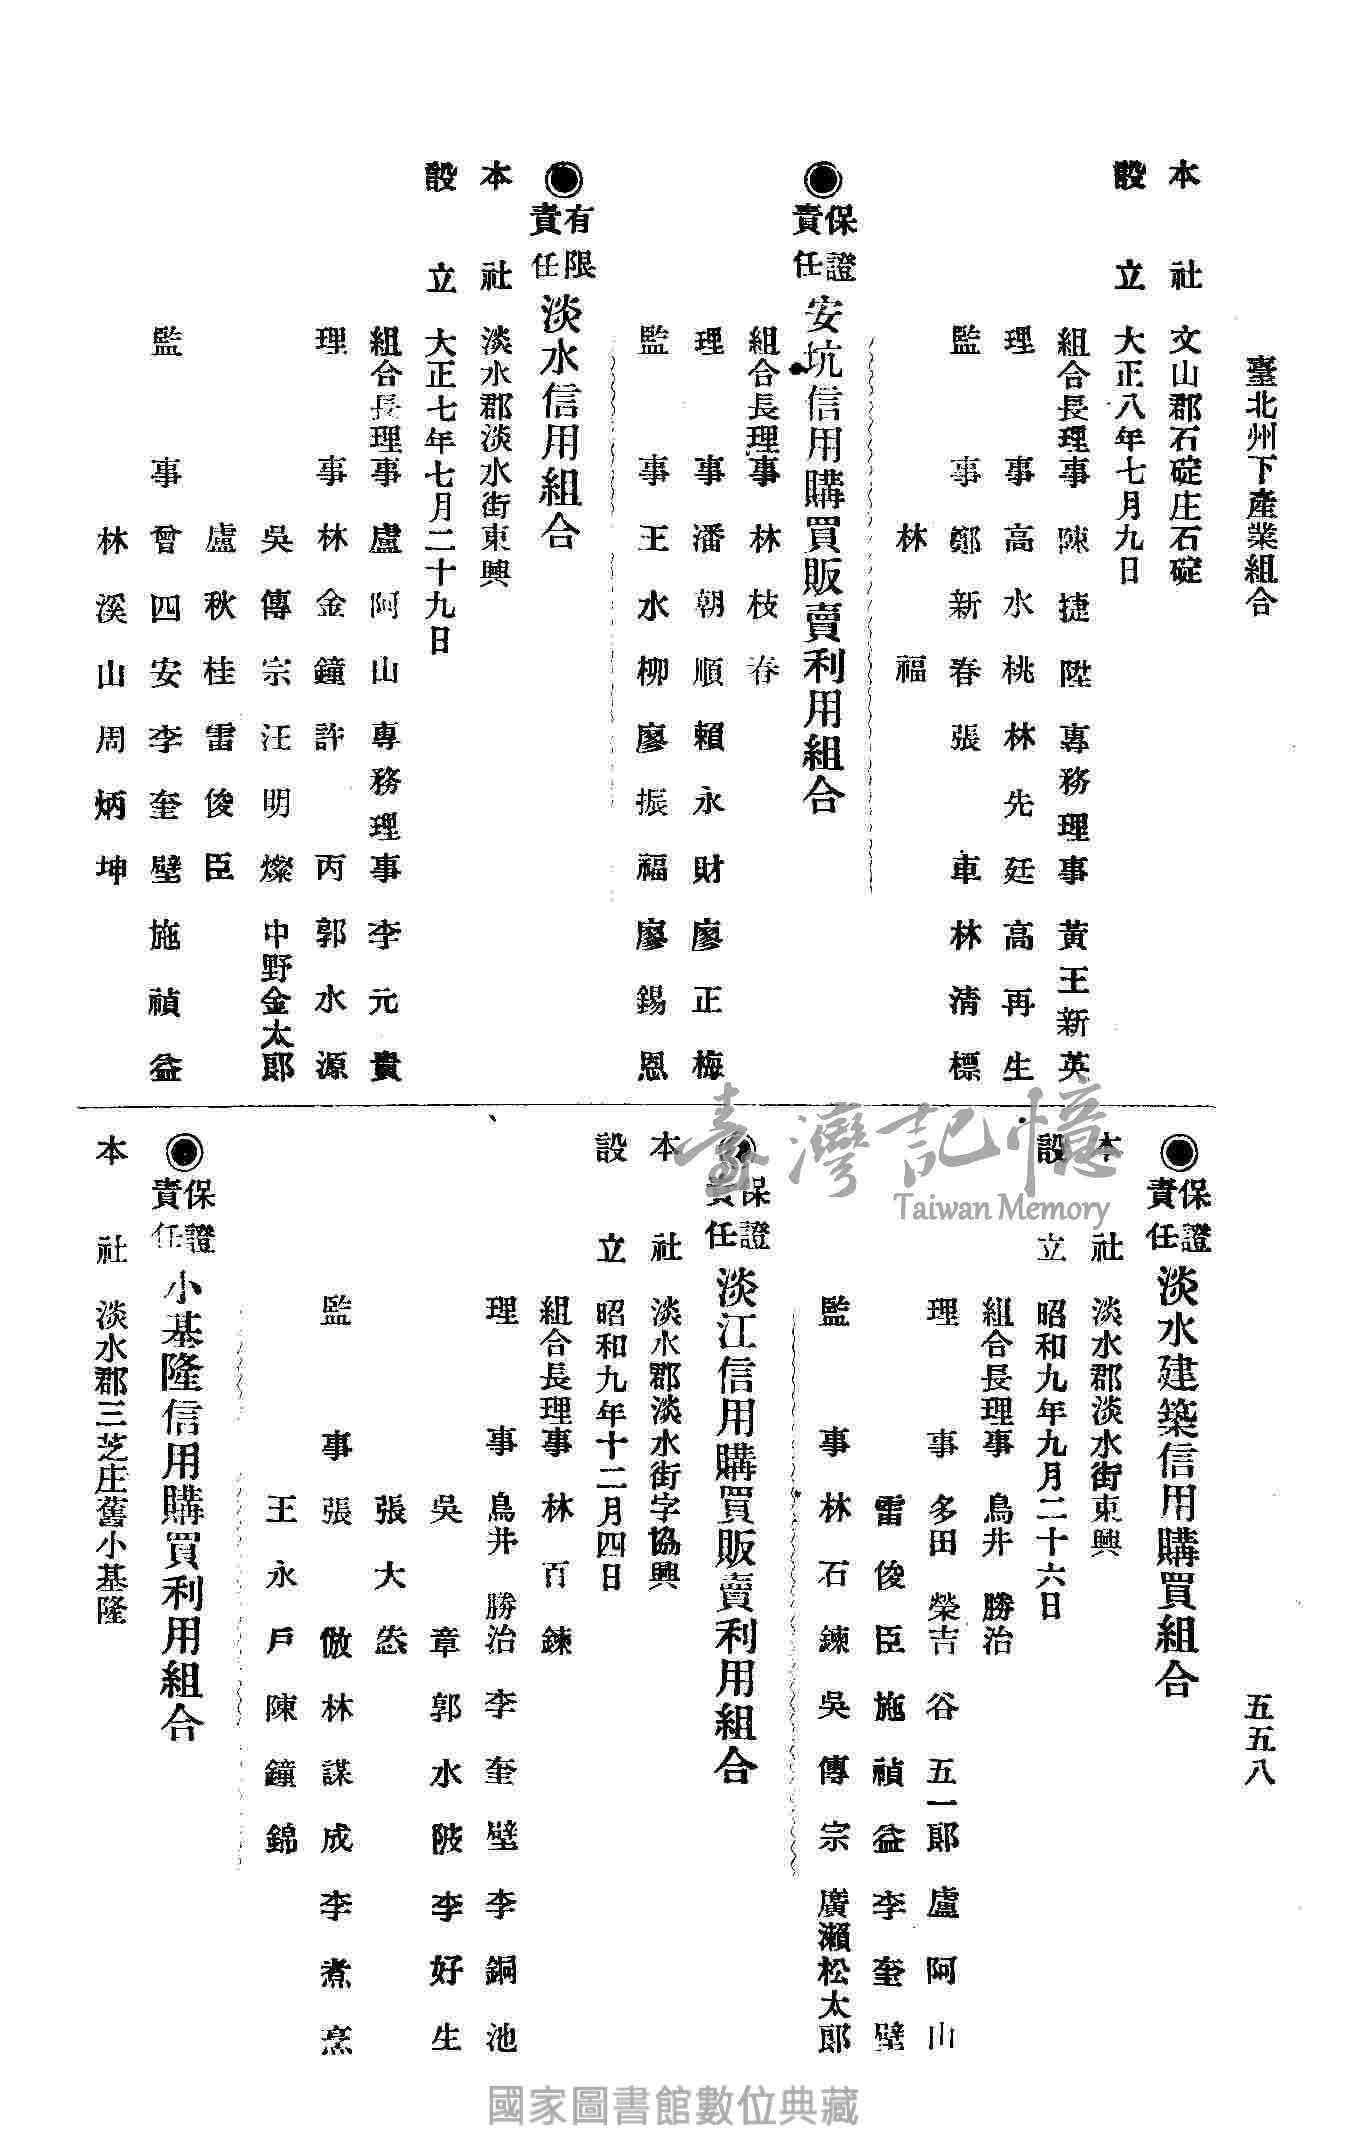 臺北州下產業組合
五五八
本社 文山郡石碇庄石碇
設立 大正八年七月九日
組合長理事 陳捷陞 專務理事 黃王新英
理事 高水桃 林先廷 高再生
監事 鄭新春 張車 林清標
林福
◉保證責任 安坑信用購買販賣利用組合
組合長理事 林枝春
理事 潘朝順 賴永財 廖正梅
監事 王水柳 廖振福 廖錫恩
◉有限責任 淡水信用組合
本社 淡水郡淡水街東興
設立 大正七年七月二十九日
組合長理事 盧阿山 專務理事 李元貴
理事 林金鐘 許丙 郭水源
吳傳宗 汪明燦 中野金太郎
盧秋桂 雷俊臣
監事 曾四安 李奎壁 施禎益
林溪山 周炳坤
◉保證責任 淡水建築信用購買組合
本社 淡水郡淡水街東興
設立 昭和九年九月二十六日
組合長理事 鳥井勝治
理事 多田榮吉 谷五一郎 盧阿山
雷俊臣 施禎益 李奎壁
監事 林石鍊 吳傳宗 廣瀨松太郎
◉保證責任 淡江信用購買販賣利用組合
本社 淡水郡淡水街字協興
設立 昭和九年十二月四日
組合長理事 林百鍊
理事 鳥井勝治 李奎壁 李銅池
吳章 郭水陂 李好生
張大恷
監事 張傲 林謀成 李煮烹
王永戶 陳鐘錦
◉保證責任 小基隆信用購買利用組合
本社 淡水郡三芝庄舊小基隆
臺灣記憶
Taiwan Memory
國家圖書館數位典藏